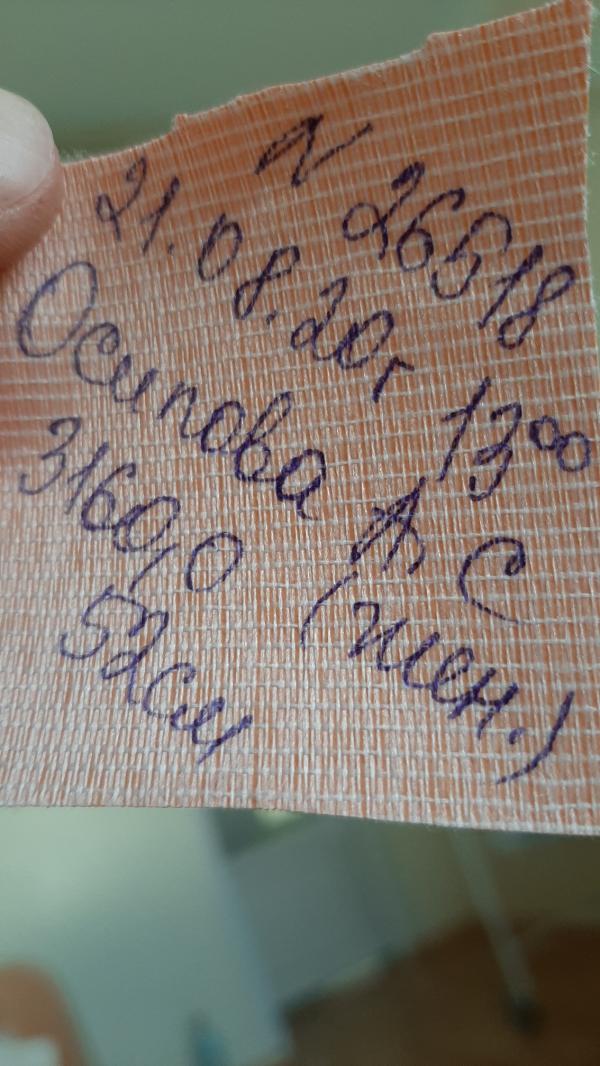 N 26518
21.08.20г 13⁰⁰
Осипова А С
3160,0 (жен.)
52см